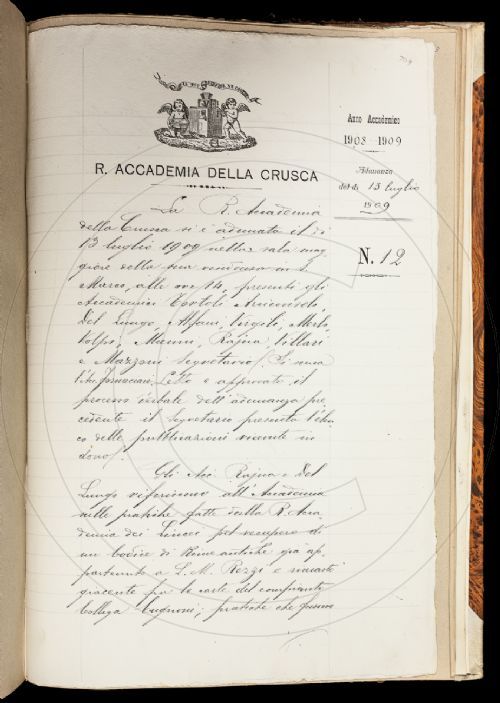 R. ACCADEMIA DELLA CRUSCA
Anno Accademico
1908-1909
Adunanza
del dì 13 luglio
1909
N. 12
La R. Accademia
della Crusca si è adunata il dì
13 luglio 1909 nella sala mag-
giore della sua residenza in S.
Marco, alle ore 14, presenti gli
Accademici Tortoli, Arciconsolo,
Del Lungo, Alfani, Vergili,
Volpi, Rajna, Villari
e Mazzoni Segretario. Si scusa
l'Acc. Fornaciari. Letto e approvato il
processo verbale dell'adunanza pre-
cedente il Segretario presenta l'elen-
co delle pubblicazioni ricevute in
dono.
Gli Acc. Rajna e Del
Lungo riferiscono all'Accademia
sulle pratiche fatte dalla R. Acca-
demia dei Lincei pel recupero di
un Codice di Rime antiche già ap-
partenuto a L. M. Rezzi e
giacente fra le carte del compianto
Collega Cugnoni; pratiche che furono